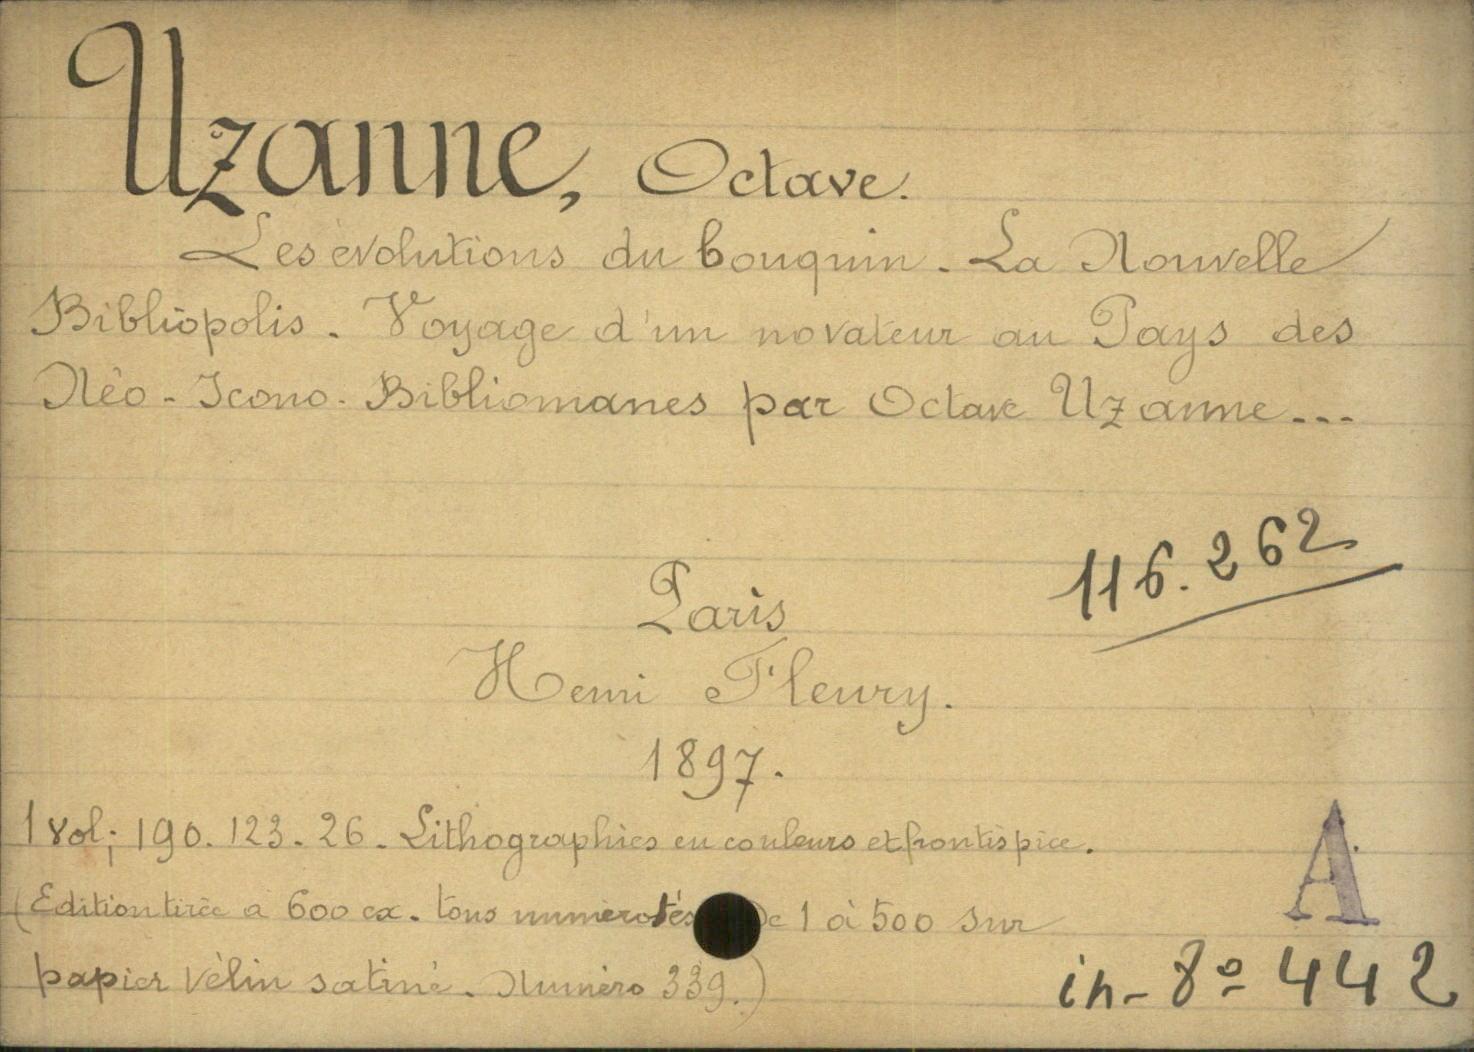 Uzanne, Octave.
Les évolutions du bouquin. La Nouvelle
Bibliopolis. Voyage d'un novateur au Pays des
Néo-Icono-Bibliomanes par Octave Uzanne...
116.262
Paris
Henri Fleury.
1897.
1 vol; 190.123.26. Lithographies en couleurs et frontispice.
A
(Edition tirée à 600 ex. tous numérotés De 1 à 500 sur
papier vélin satiné. Numéro 339.)
in-8º 442